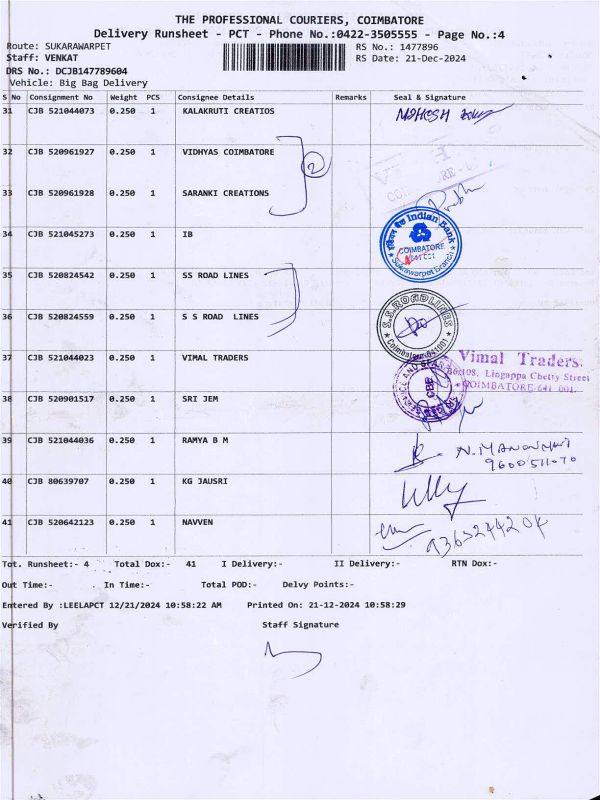 THE PROFESSIONAL COURIERS, COIMBATORE
Delivery Runsheet - PCT - Phone No.:0422-3505555 - Page No.:4
Route: SUKARAWARPET RS No.: 1477896
Staff: VENKAT RS Date: 21-Dec-2024
DRS No.: DCJB147789604
Vehicle: Big Bag Delivery
S No Consignment No Weight PCS Consignee Details Remarks Seal & Signature
31 CJB 521044073 0.250 1 KALAKRUTI CREATIOS MAHESH
32 CJB 520961927 0.250 1 VIDHYAS COIMBATORE
2
33 CJB 520961928 0.250 1 SARANKI CREATIONS
34 CJB 521045273 0.250 1 IB
Indian Bank
COIMBATORE
641 001
Sukrawarpet Branch
35 CJB 520824542 0.250 1 SS ROAD LINES
36 CJB 520824559 0.250 1 S S ROAD LINES
S.S.ROADLINES
Coimbatore-641001
37 CJB 521044023 0.250 1 VIMAL TRADERS
Vimal Traders.
86/108, Lingappa Chetty Street
COIMBATORE-641 001.
38 CJB 520901517 0.250 1 SRI JEM
CBE
39 CJB 521044036 0.250 1 RAMYA B M
40 CJB 80639707 0.250 1 KG JAUSRI
41 CJB 520642123 0.250 1 NAVVEN
Tot. Runsheet:- 4 Total Dox:- 41 I Delivery:- II Delivery:- RTN Dox:-
Out Time:- In Time:- Total POD:- Delvy Points:-
Entered By :LEELAPCT 12/21/2024 10:58:22 AM Printed On: 21-12-2024 10:58:29
Verified By Staff Signature